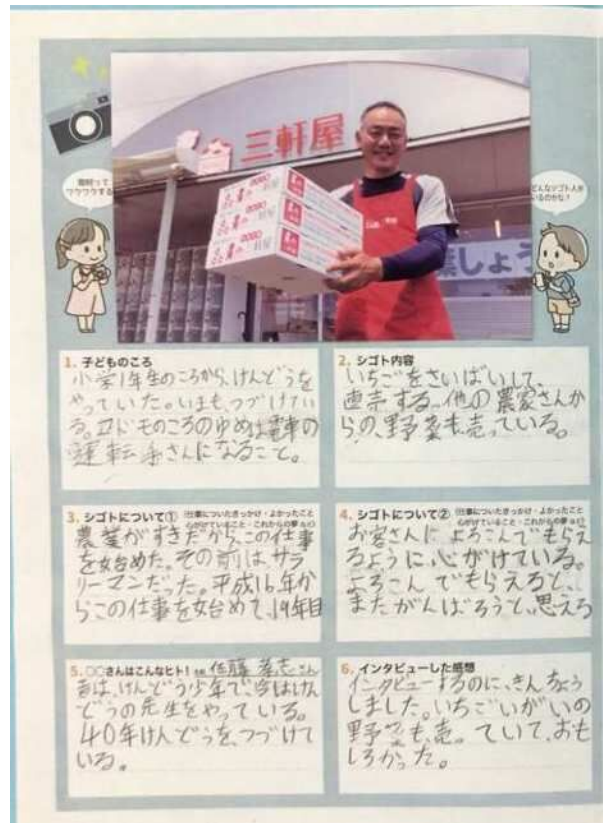 三軒屋
取材って
ワクワクする
どんなシゴト人が
いるのかな？
しょう
1. 子どものころ
小学1年生のころから、けんどうを
やっていた。いまも、つづけてい
る。コドモのころのゆめは電車の
運転手さんになること。
2. シゴト内容
いちごをさいばいして、
直売する。他の農家さんか
らの、野菜も売っている。
3. シゴトについて① (仕事についたきっかけ・よかったこと
心がけていること・これからの夢 など)
農業がすきだから、この仕事
を始めた。その前はサラ
リーマンだった。平成16年か
らこの仕事を始めて、19年目
4. シゴトについて② (仕事についたきっかけ・よかったこと
心がけていること・これからの夢 など)
お客さんによろこんでもらえ
るように、心がけている。
よろこんでもらえると、
またがんばろうと、思える
5. ○○さんはこんなヒト! 佐藤 さん
昔は、けんどう少年で、今はけん
どうの先生をやっている。
40年けんどうを、つづけて
いる。
6. インタビューした感想
インタビューするのに、きんちょう
しました。いちごいがいの
野菜も、売っていて、おも
しろかった。